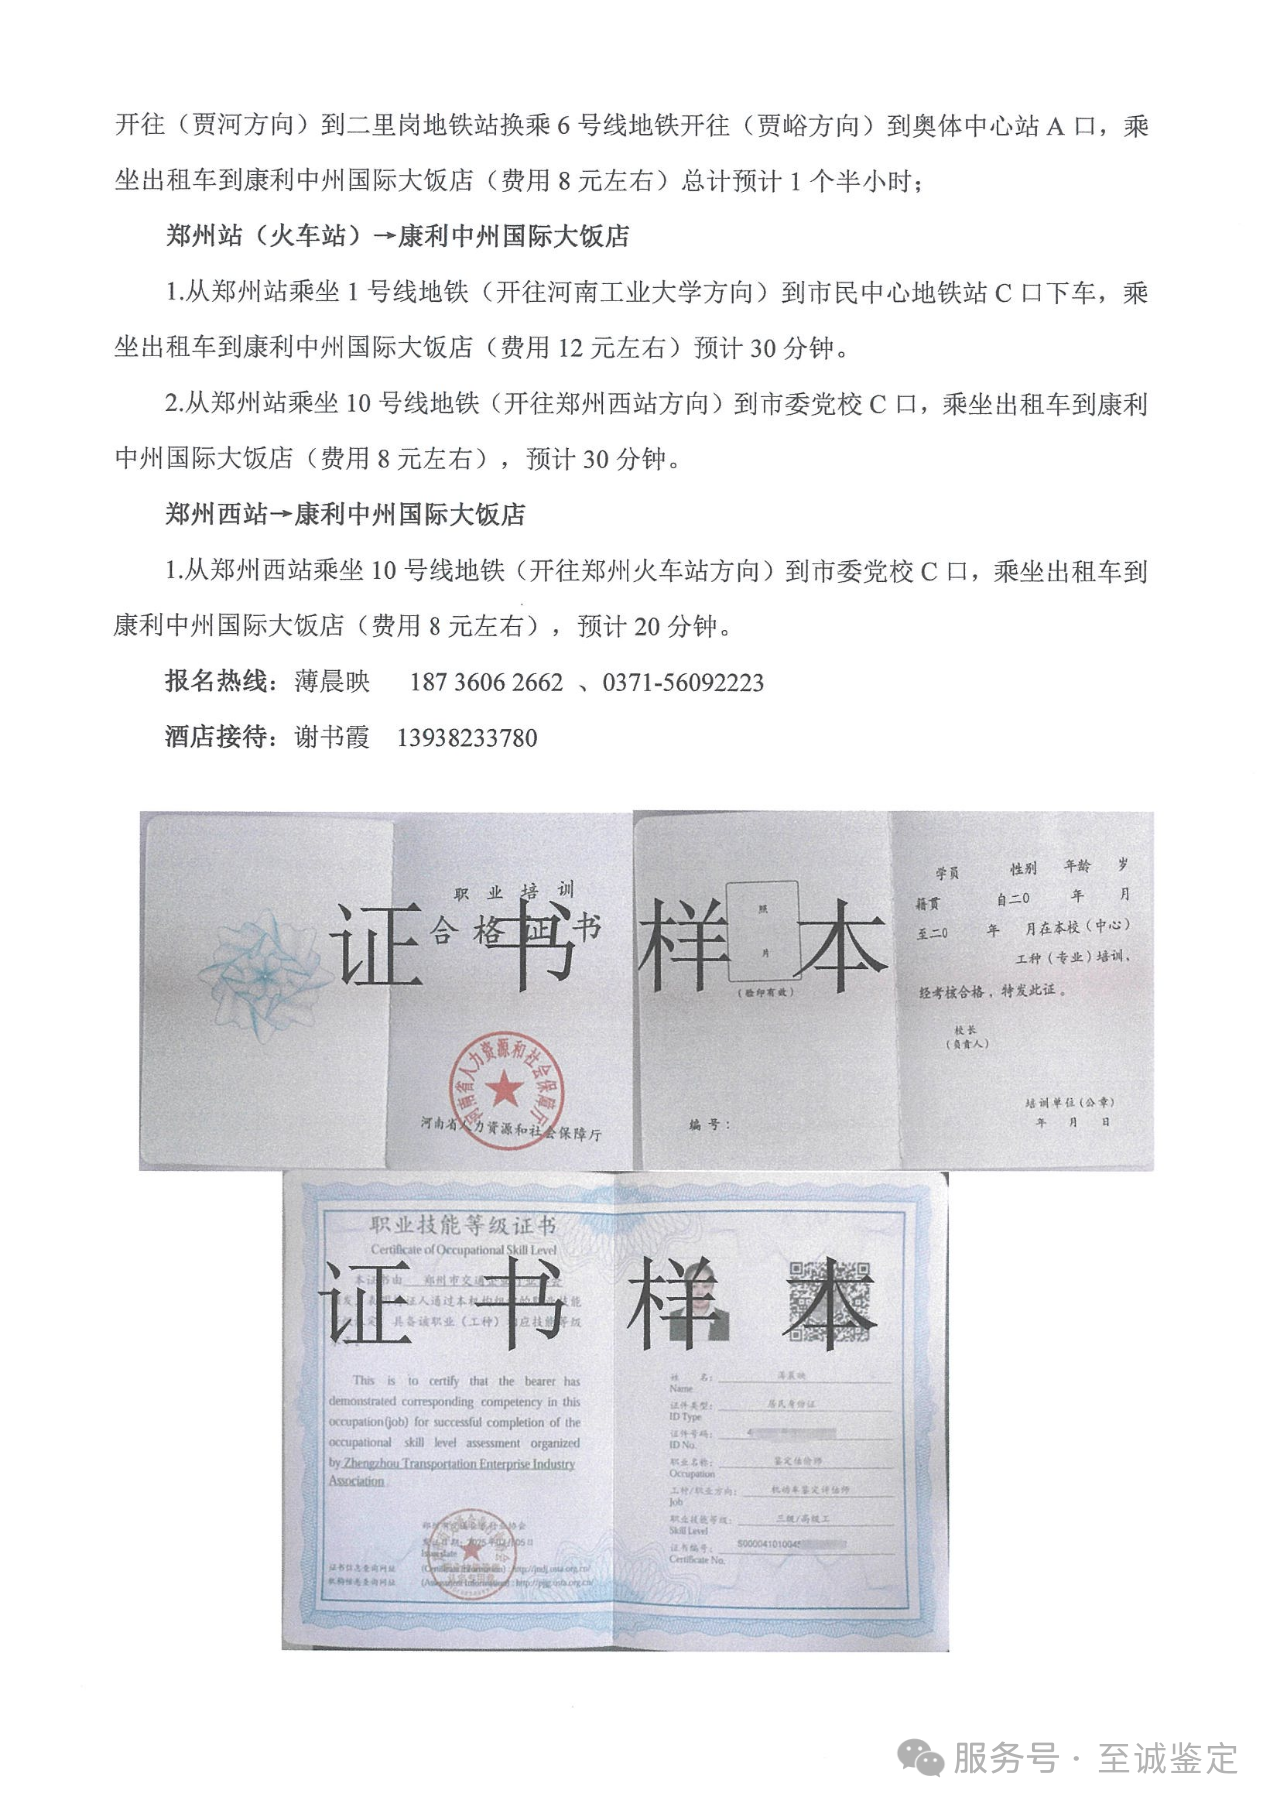 开往（贾河方向）到二里岗地铁站换乘 6 号线地铁开往（贾峪方向）到奥体中心站 A 口，乘
坐出租车到康利中州国际大饭店（费用 8 元左右）总计预计 1 个半小时；
郑州站（火车站）→康利中州国际大饭店
1.从郑州站乘坐 1 号线地铁（开往河南工业大学方向）到市民中心地铁站 C 口下车，乘
坐出租车到康利中州国际大饭店（费用 12 元左右）预计 30 分钟。
2.从郑州站乘坐 10 号线地铁（开往郑州西站方向）到市委党校 C 口，乘坐出租车到康利
中州国际大饭店（费用 8 元左右），预计 30 分钟。
郑州西站→康利中州国际大饭店
1.从郑州西站乘坐 10 号线地铁（开往郑州火车站方向）到市委党校 C 口，乘坐出租车到
康利中州国际大饭店（费用 8 元左右），预计 20 分钟。
报名热线：薄晨映 187 3606 2662 、0371-56092223
酒店接待：谢书霞 13938233780
证书样本
职业培训
合格证书
河南省人力资源和社会保障厅
河南省人力资源和社会保障厅
照
片
(验印有效)
编号：
学员 性别 年龄 岁
籍贯 自二0 年 月
至二0 年 月在本校(中心)
工种(专业)培训,
经考核合格，特发此证。
校长
(负责人)
培训单位(公章)
年 月 日
证书样本
职业技能等级证书
Certificate of Occupational Skill Level
本证书由 郑州市交通
证人通过本机构
职业技能
具备该职业（工种）
应技能等级
This is to certify that the bearer has
demonstrated corresponding competency in this
occupation(job) for successful completion of the
occupational skill level assessment organized
by Zhengzhou Transportation Enterprise Industry
Association
证书信息查询网址
机构信息查询网址
姓 名： 薄晨映
Name
证件类型： 居民身份证
ID Type
证件号码： 4
ID No.
职业名称： 鉴定估价师
Occupation
工种/职业方向： 机动车鉴定评估师
Job
职业技能等级： 三级/高级工
Skill Level
证书编号： S0000410100
Certificate No.
服务号 · 至诚鉴定